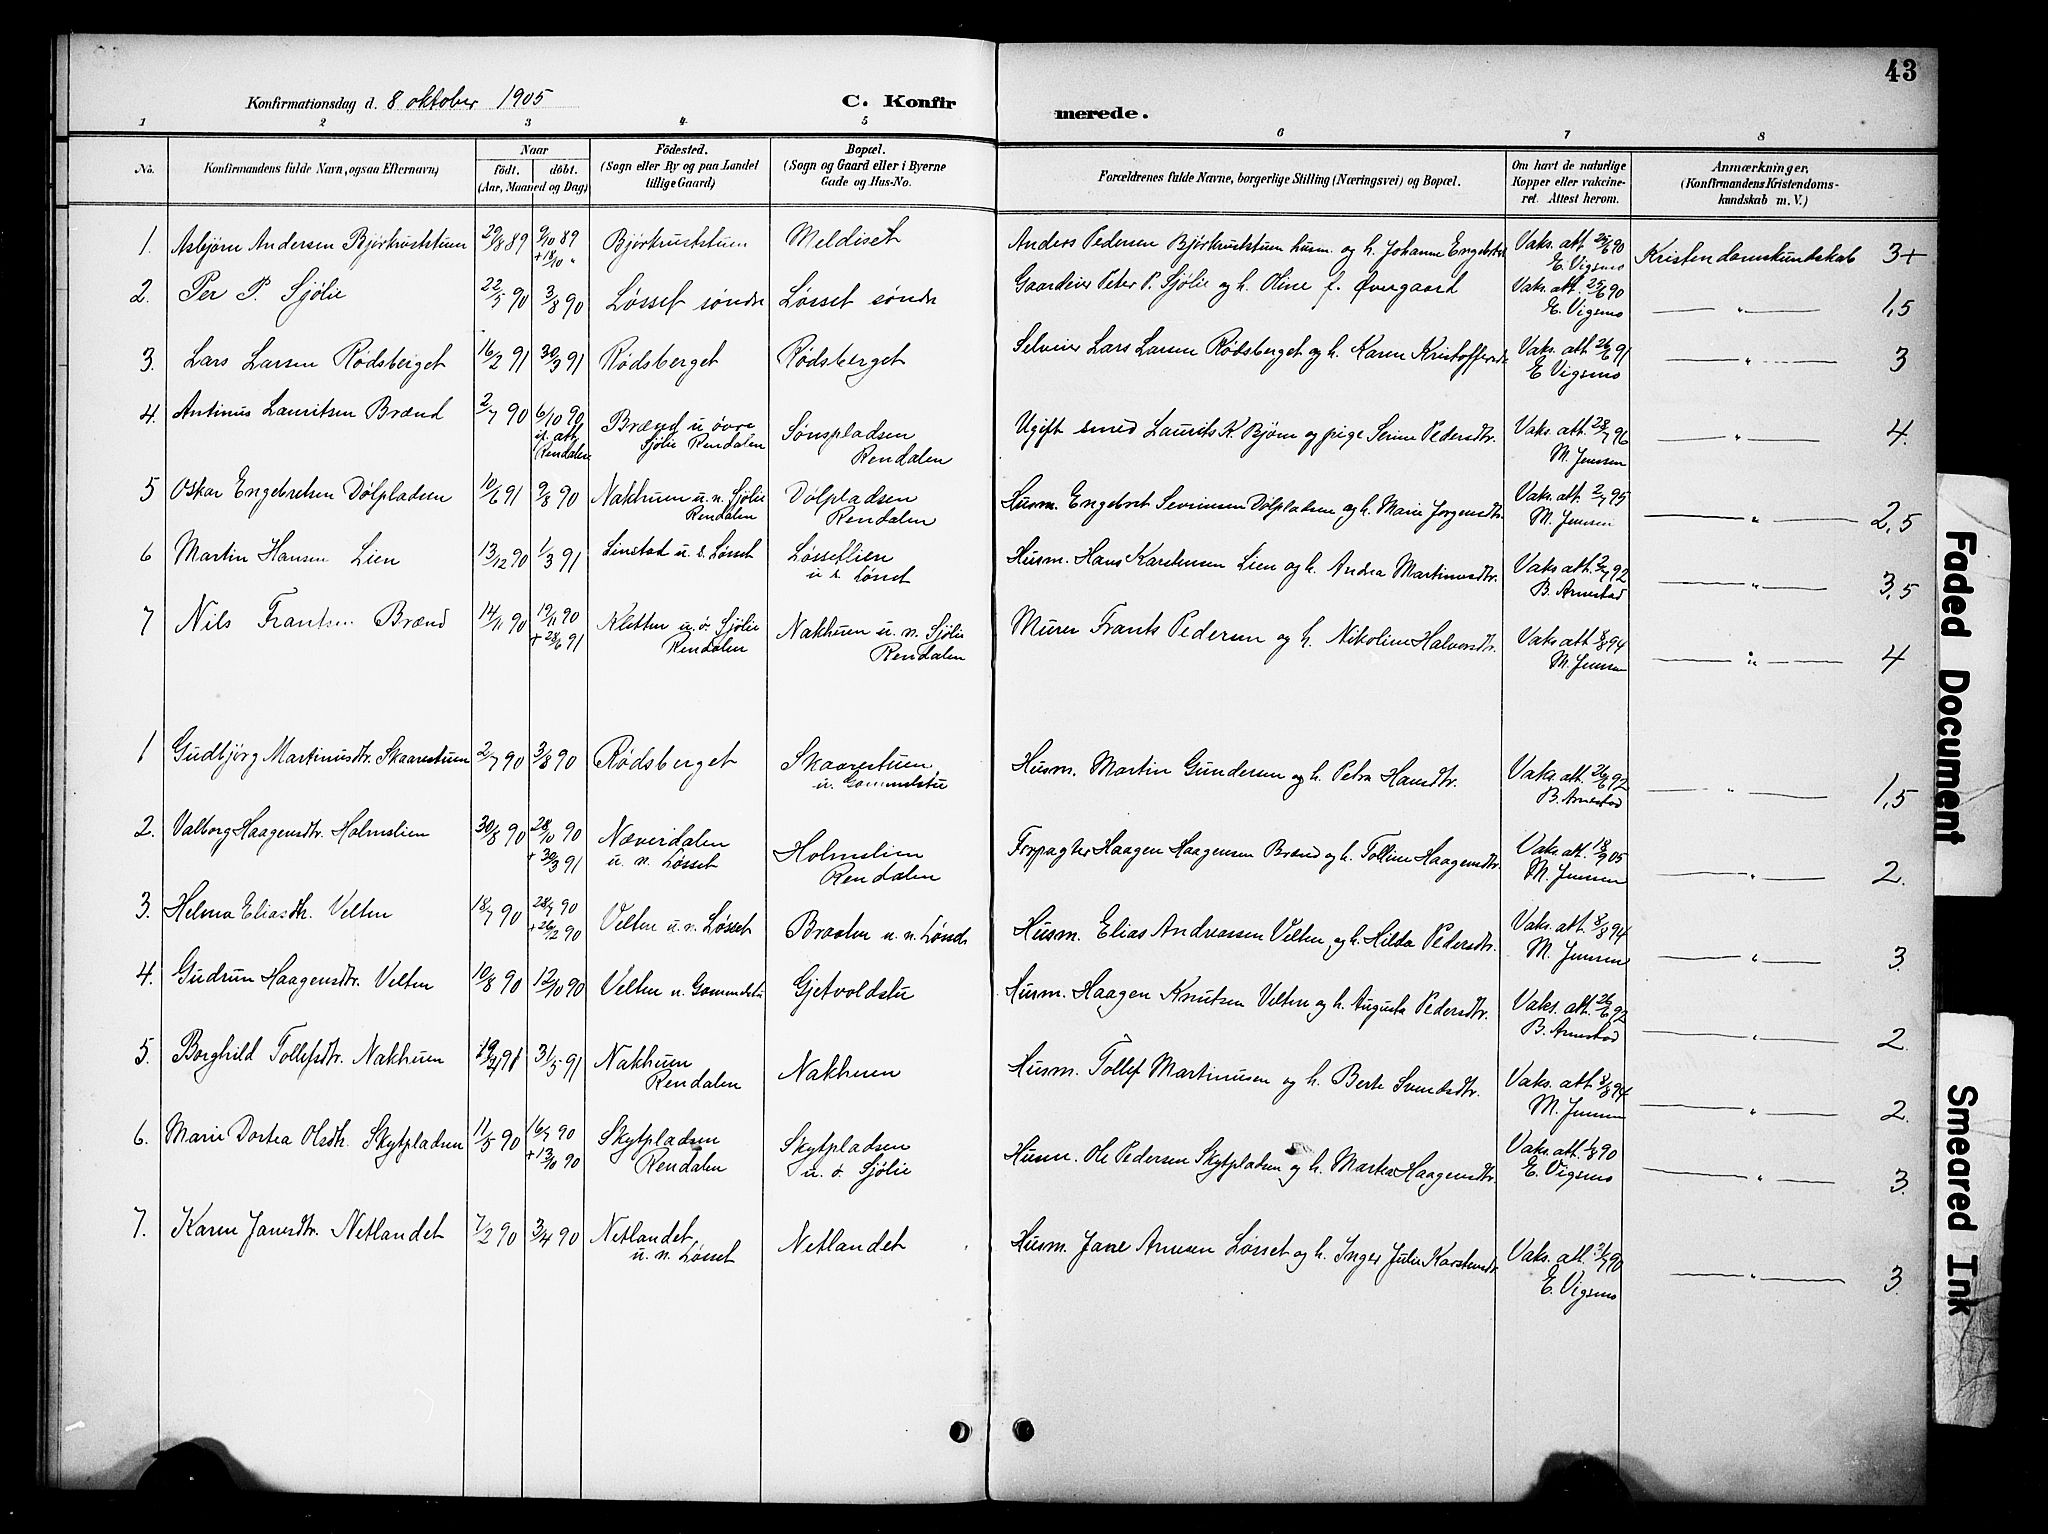 43
Konfirmationsdag d. 8 oktober 1905 C. Konfir merede.
1 2 3 4 5 6 7 8
No. Konfirmandens fulde Navn, ogsaa Efternavn) Naar født. døbt. (Aar, Maaned og Dag) Födested. (Sogn eller By og paa Landet tillige Gaard) Bopæl. (Sogn og Gaard eller i Byerne Gade og Hus-No. Forældrenes fulde Navne, borgerlige Stilling (Næringsvei) og Bopæl. Om havt de naturlige Kopper eller vakcineret. Attest herom. Anmærkninger, (Konfirmandens Kristendomskundskab m. V.)
1. Asbjørn Andersen Bjørkuststuen 29/8 89 9/10 89 + 18/10 " Bjørkuststuen Meldiset Anders Pedersen Bjørkuststuen husm. og h. Johanne Engebrtsd. Vaks. att. 25/6 90 E. Vigsmo Kristendomskundskab 3+
2. Per P. Sjölie 22/5 90 3/8 90 Løsset søndr Løsset søndr Gaardeier Peter P. Sjølie og h. Oline f. Øvergaard Vaks. att. 25/6 90 E. Vigsmo " 1,5
3. Lars Larsen Rødsberget 16/2 91 30/3 91 Rødsberget Rødsberget Selveier Lars Larsen Rødsberget og h. Karen Kristoffersdr Vaks. att. 26/6 91 E Vigsmo " 3
4. Antinus Lauritsen Brænd 2/7 90 6/10 90 if. att. Rendalen Brænd u øvre Sjölie Rendalen Sønspladsen Rendalen Ugift smed Laurits K. Bjørn og pige Serine Pedersdtr. Vaks. att. 28/7 96 M. Jenssen " 4.
5 Oskar Engebretsen Dölpladsen 10/6 91 9/8 90 Nakhuen u. n. Sjölie Rendalen Dölpladsen Rendalen Husm. Engebret Severinsen Dölpladsen og h. Marie Jørgensdtr. Vaks. att. 2/7 95 M. Jensen " 2,5
6 Martin Hansen Lien 13/12 90 1/3 91 Linstad u. s. Løsset Løssetlien u s. Lønset Husm. Hans Karstensen Lien og h. Andrea Martinusdtr. Vaks att. 2/7 92 B. Arnestad " 3,5
7 Nils Frantsen Brænd 14/11 90 19/11 90 + 28/6 91 Kletten u. ö. Sjölie Rendalen Nakhuen u. n. Sjölie Rendalen Murer Frants Pedersen og h. Nikoline Halvorsdtr. Vaks att. 8/8 94 M. Jenssen " 4
1 Gudbjørg Martinusdtr. Skaarestuen 2/7 90 3/8 90 Rødsberget Skaarestuen u. Gammelstu Husm. Martin Gundersen og h. Petra Hansdtr. Vaks. att. 26/6 92 B. Arnestad " 1,5
2. Valborg Haagensdtr. Holmslien 30/8 90 28/10 90 + 30/3 91 Næverdalen u. n. Løsset Holmslien Rendalen Forpagter Haagen Haagensen Brænd og h. Tolline Haagensdtr. Vaks. att. 18/9 05 M. Jenssen " 2.
3. Helma Eliasdtr. Velten 18/7 90 28/7 90 + 26/12 90 Velten u. n. Løsset Braaten u. n. Lønsd. Husm. Elias Andreassen Velten og h. Hilda Pedersdtr. Vaks. att. 8/8 94 M. Jenssen " 3.
4. Gudrun Haagensdtr. Velten 10/8 90 12/10 90 Velten u. Gammelstu Gjetvoldstu Husm. Haagen Knutsen Velten og h. Augusta Pedersdtr. Vaks. att. 26/6 92 B. Arnestad " 2.
5. Borghild Tollefsdtr. Nakhuen 19/4 91 31/5 91 Nakhuen Rendalen Nakhuen Husm. Tollef Martinusen og h. Berte Svendsdtr. Vaks. att. 8/8 94 M. Jenssen " 2.
6. Marie Dortea Olsdtr. Skytpladsen 11/5 90 16/7 90 + 13/10 90 Skytpladsen Rendalen Skytpladsen u. ö Sjölie Husm. Ole Pedersen Skytpladsen og h. Martea Haagensdtr. Vaks. att. 1/8 90 E. Vigsmo " 3.
7. Karen Jansdtr. Netlandet 7/2 90 3/4 90 Netlandet u. n. Løsset Netlandet Husm. Jane Arnesen Løsset og h. Inger Julie Karstensdtr. Vaks. att. 3/7 90 E. Vigsmo " 3.
Faded Document
Smeared Ink